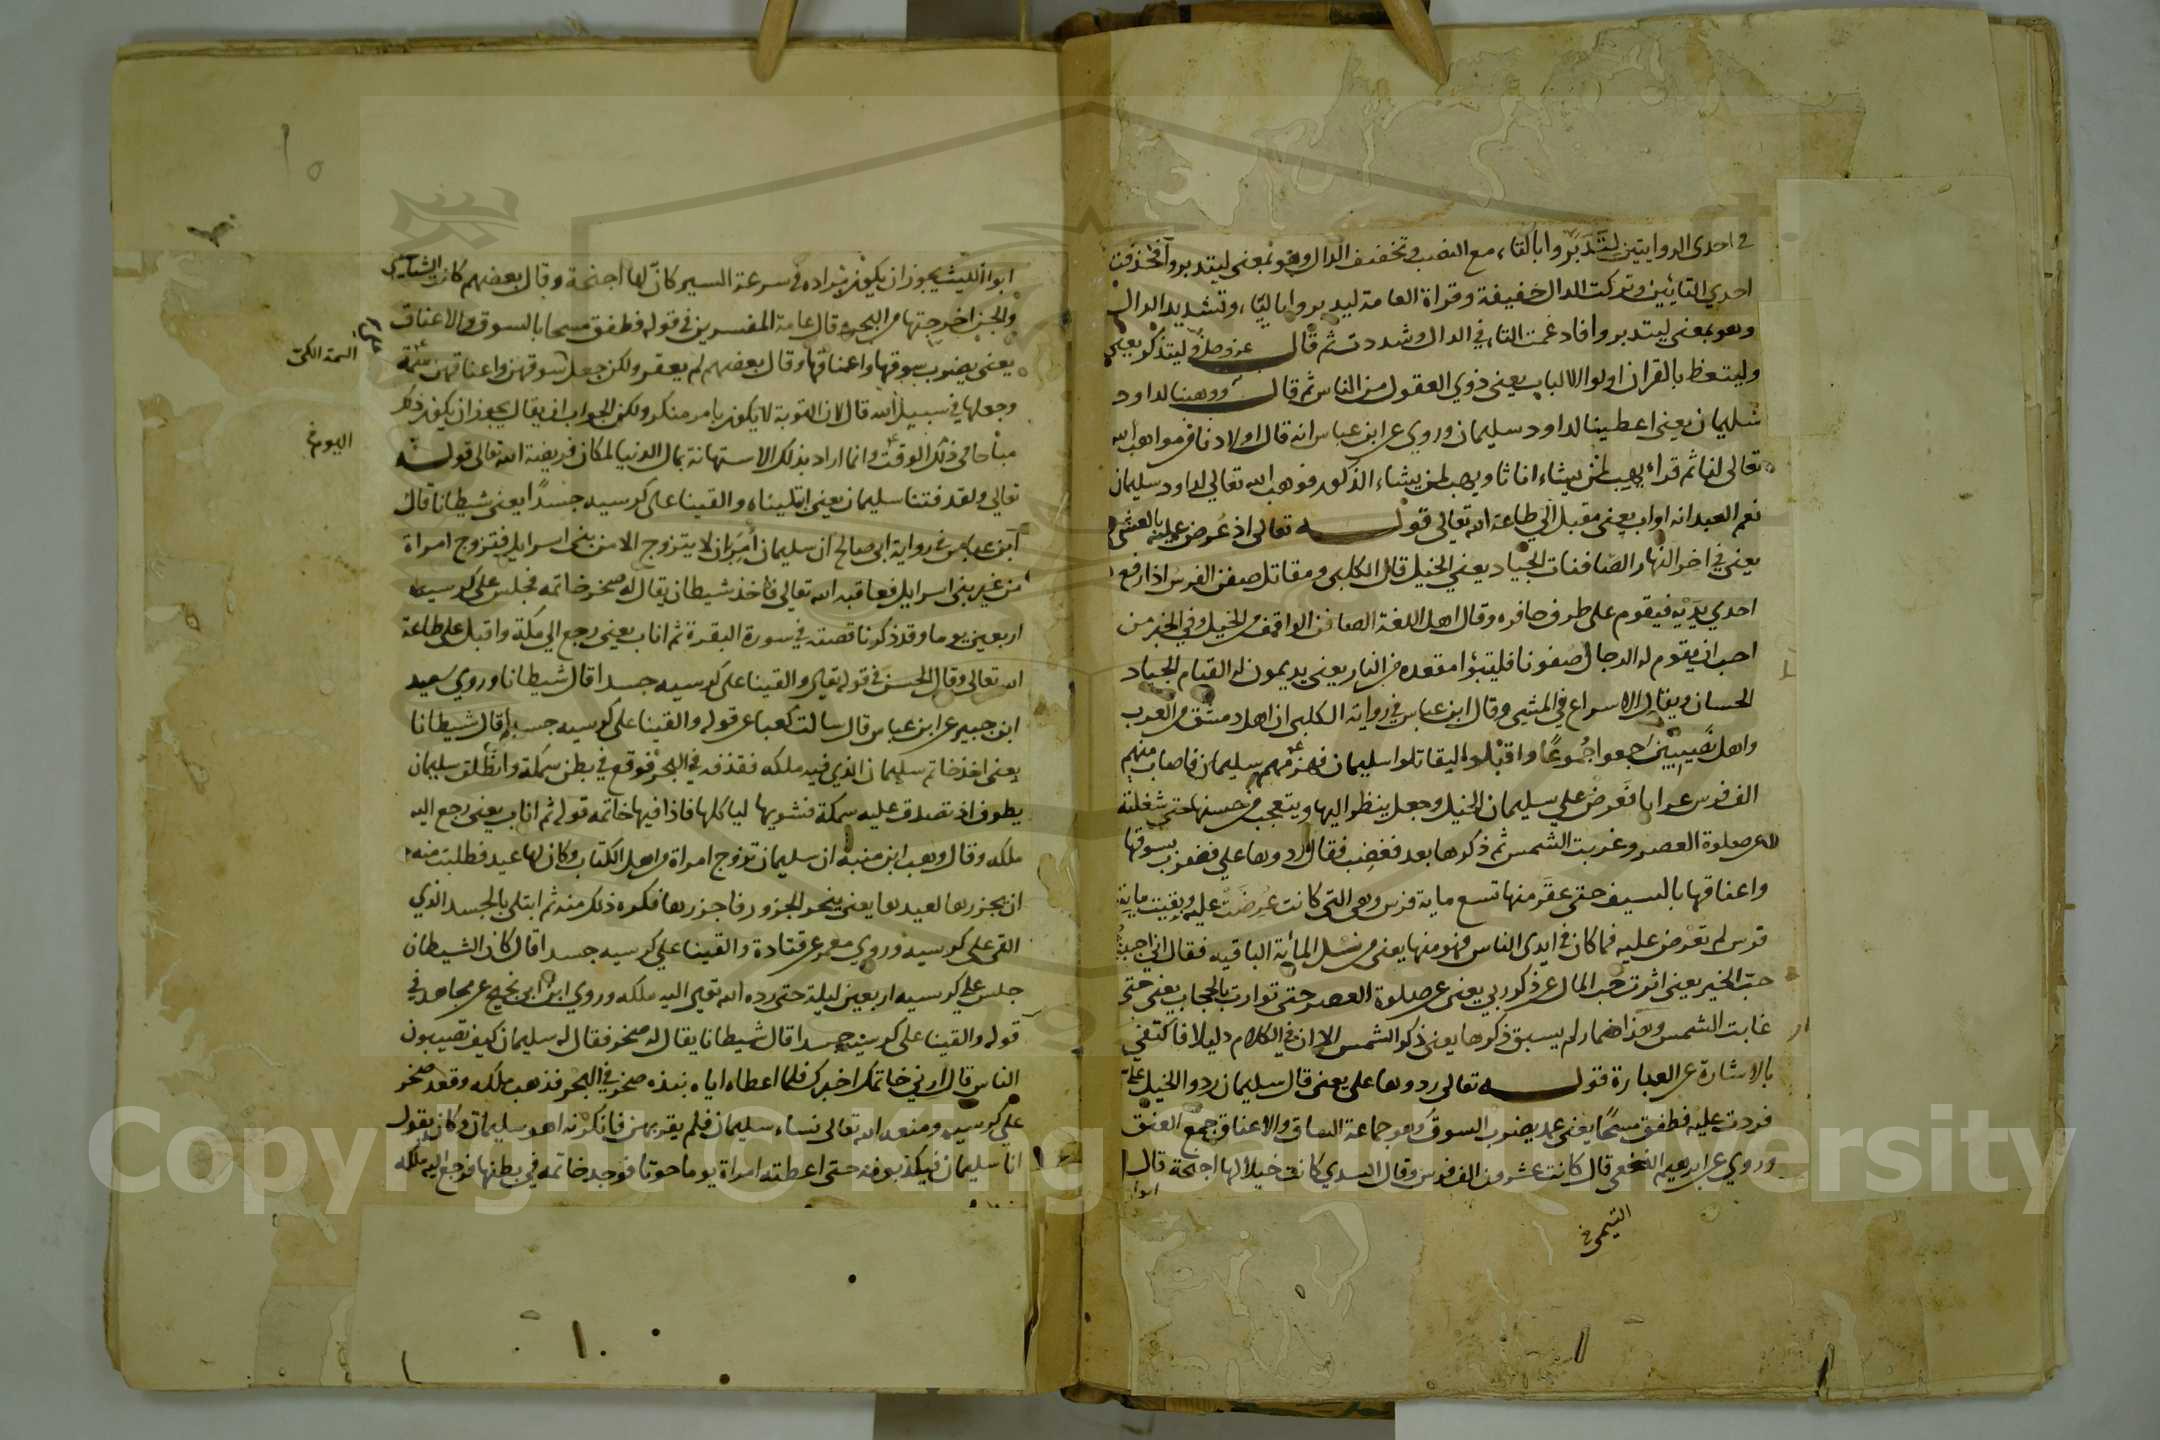 في احدى الروايتين لتَدَبَّروا بالتاء مع النصب وتخفيف الدال وهو بمعنى ليتدبروا فحذفت
احدي التائين وتركت الدال خفيفة وقراة العامة ليدبروا بالياء وتشديد الدال
وهو بمعنى ليتدبروا فادغمت التاء في الدال وشددت ثم قال عز وجل وليتذكر يعني
وليتعظ بالقران اولوا الالباب يعني ذوي العقول من الناس ثم قال ووهبنا لداود
سليمان يعني اعطينا لداود سليمان وروي عن ابن عباس انه قال اولادنا من مواهب الله
تعالى لنا ثم قراء يهب لمن يشاء اناثا ويهب لمن يشاء الذكور فوهب الله تعالي لداود سليمان
نعم العبد انه اواب يعني مقبل الي طاعة الله تعالى قوله تعالى اذ عُرض عليه بالعشى
يعني في اخر النهار الصافنات الجياد يعني الخيل قال الكلبي ومقاتل صفن الفرس اذا رفع
احدي يديه فيقوم على طرف حافره وقال اهل اللغة الصافن الواقف من الخيل وفي الخبر من
احب ان يقوم له الرجال صفونا فليتبوا مقعده من النار يعني يديمون له القيام الجياد
الحسان ويقال الاسراع في المشي وقال ابن عباس في رواية الكلبي ان اهل دمشق من العرب
واهل نصيبين جمعوا جُموعًا واقبلوا ليقاتلوا سليمان فهزمهم سليمان فاصاب منهم
الف فرس عرابا فعَرض علي سليمان الخيل وجعل ينظر اليها ويتعجب من حسنها حتى شغلته
عن صلوة العصر وغربت الشمس ثم ذكرها بعد فغضِب فقال ردوها علي فضرب بسوقها
واعناقها بالسيف حتى عقَر منها تسع ماية فرس وهى التى كانت عُرِضَتْ عليه وبقيت ماية
فرس لم تعرض عليه فما كان في ايدى الناس فهو منها يعني من نسل المائة الباقيه فقال اني احببت
حبّ الخير يعني اثرت حُب المال عن ذكر ربي يعني عن صلوة العصر حتى توارت بالحجاب يعني حتى
غابت الشمس وهذا اضمار لم يسبق ذكرها يعني ذكر الشمس الا ان في الكلام دليلا فاكتفي
بالاشارة عن العبارة قوله تعالى ردوها على يعنى قال سليمان ردوا الخيل علىّ
فردت عليه فطفق مسحًا يعني عمد يضرب السوق وهو جماعة الساق والاعناق جمع العنق
وروي عن ابراهيم النخعي قال كانت عشرون الف فرس وقال السدي كانت خيلا لها اجنحة قال
ابوا
التيمى خ
ابوا الليث يجوز ان يكون مراده في سرعة السير كانّ لها اجنحة وقال بعضهم كانت الشياطين
والجن اخرجتها من البحر قال عامة المفسرين في قوله فطفق مسحا بالسوق والاعناق
يعني يضرب سوقها واعناقها وقال بعضهم لم يعقر ولكن جعل سوقهن واعناقهن سمة
السمة الكىّ
وجعلها في سبيل الله قال لان التوبة لا يكون بامر منكر ولكن الجواب ان يقال يجوز ان يكون ذلك
مباحا في ذلك الوقت وانما اراد بذلك الاستهانة بمال الدنيا لمكان فريضة الله تعالى قوله
اليوم خ
تعالي ولقد فتنا سليمان يعني ابتليناه والقينا على كرسيه جسدًا يعني شيطانا قال
ابن عباس في رواية ابي صالح ان سليمان اُمِرَ ان لا يتزوج الا من بني اسرايل فتزوج امراة
من غير بني اسرايل فعاقبه الله تعالى فاخذ شيطان يقال له صخر خاتمه فجلس على كرسيه
اربعين يوما وقد ذكرنا قصته في سورة البقرة ثم اناب يعني رجع الي ملكه واقبل على طاعة
الله تعالى وقال الحسن في قوله تعالى والقينا على كرسيه جسدا قال شيطانا وروي سعيد
ابن جبير عن ابن عباس قال سالت كعبا عن قوله والقينا على كرسيه جسدا قال شيطانا
يعني اخذ خاتم سليمان الذي فيه ملكه فقذفه في البحر فوقع في بطن سمكة وانطلق سليمان
يطوف اذ تصدق عليه سمكة فشويها لياكلها فاذا فيها خاتمه قوله ثم اناب يعني رجع اليه
ملكه وقال وهب ابن منبه ان سليمان تزوج امراة من اهل الكتاب وكان لها عيد فطلبت منه
ان يجزر لها لعيدها يعني ينحر الجزور فاجزرها فكره ذلك منه ثم ابتلي بالجسد الذي
القى على كرسيه وروي معمر عن قتادة والقينا علي كرسيه جسدا قال كان الشيطان
جلس على كرسيه اربعين ليلة حتى رده الله تعالى اليه ملكه وروي ابن ابي نجيح عن مجاهد في
قوله والقينا على كرسيه جسدا قال شيطانا يقال له صخر فقال له سليمان كيف تصيبون
الناس قال ارني خاتمك اخبرك فلما اعطاه اياه نبذه صخر في البحر فذهب ملكه وقعد صخر
علي كرسيه ومنعه الله تعالى نساء سليمان فلم يقربهن فانكرنه اهو سليمان وكان يقول
انا سليمان فيكذبونه حتى اعطته امراة يوما حوتا فوجد خاتمه في بطنها فرجع اليه ملكه
Copyright © King Saud University